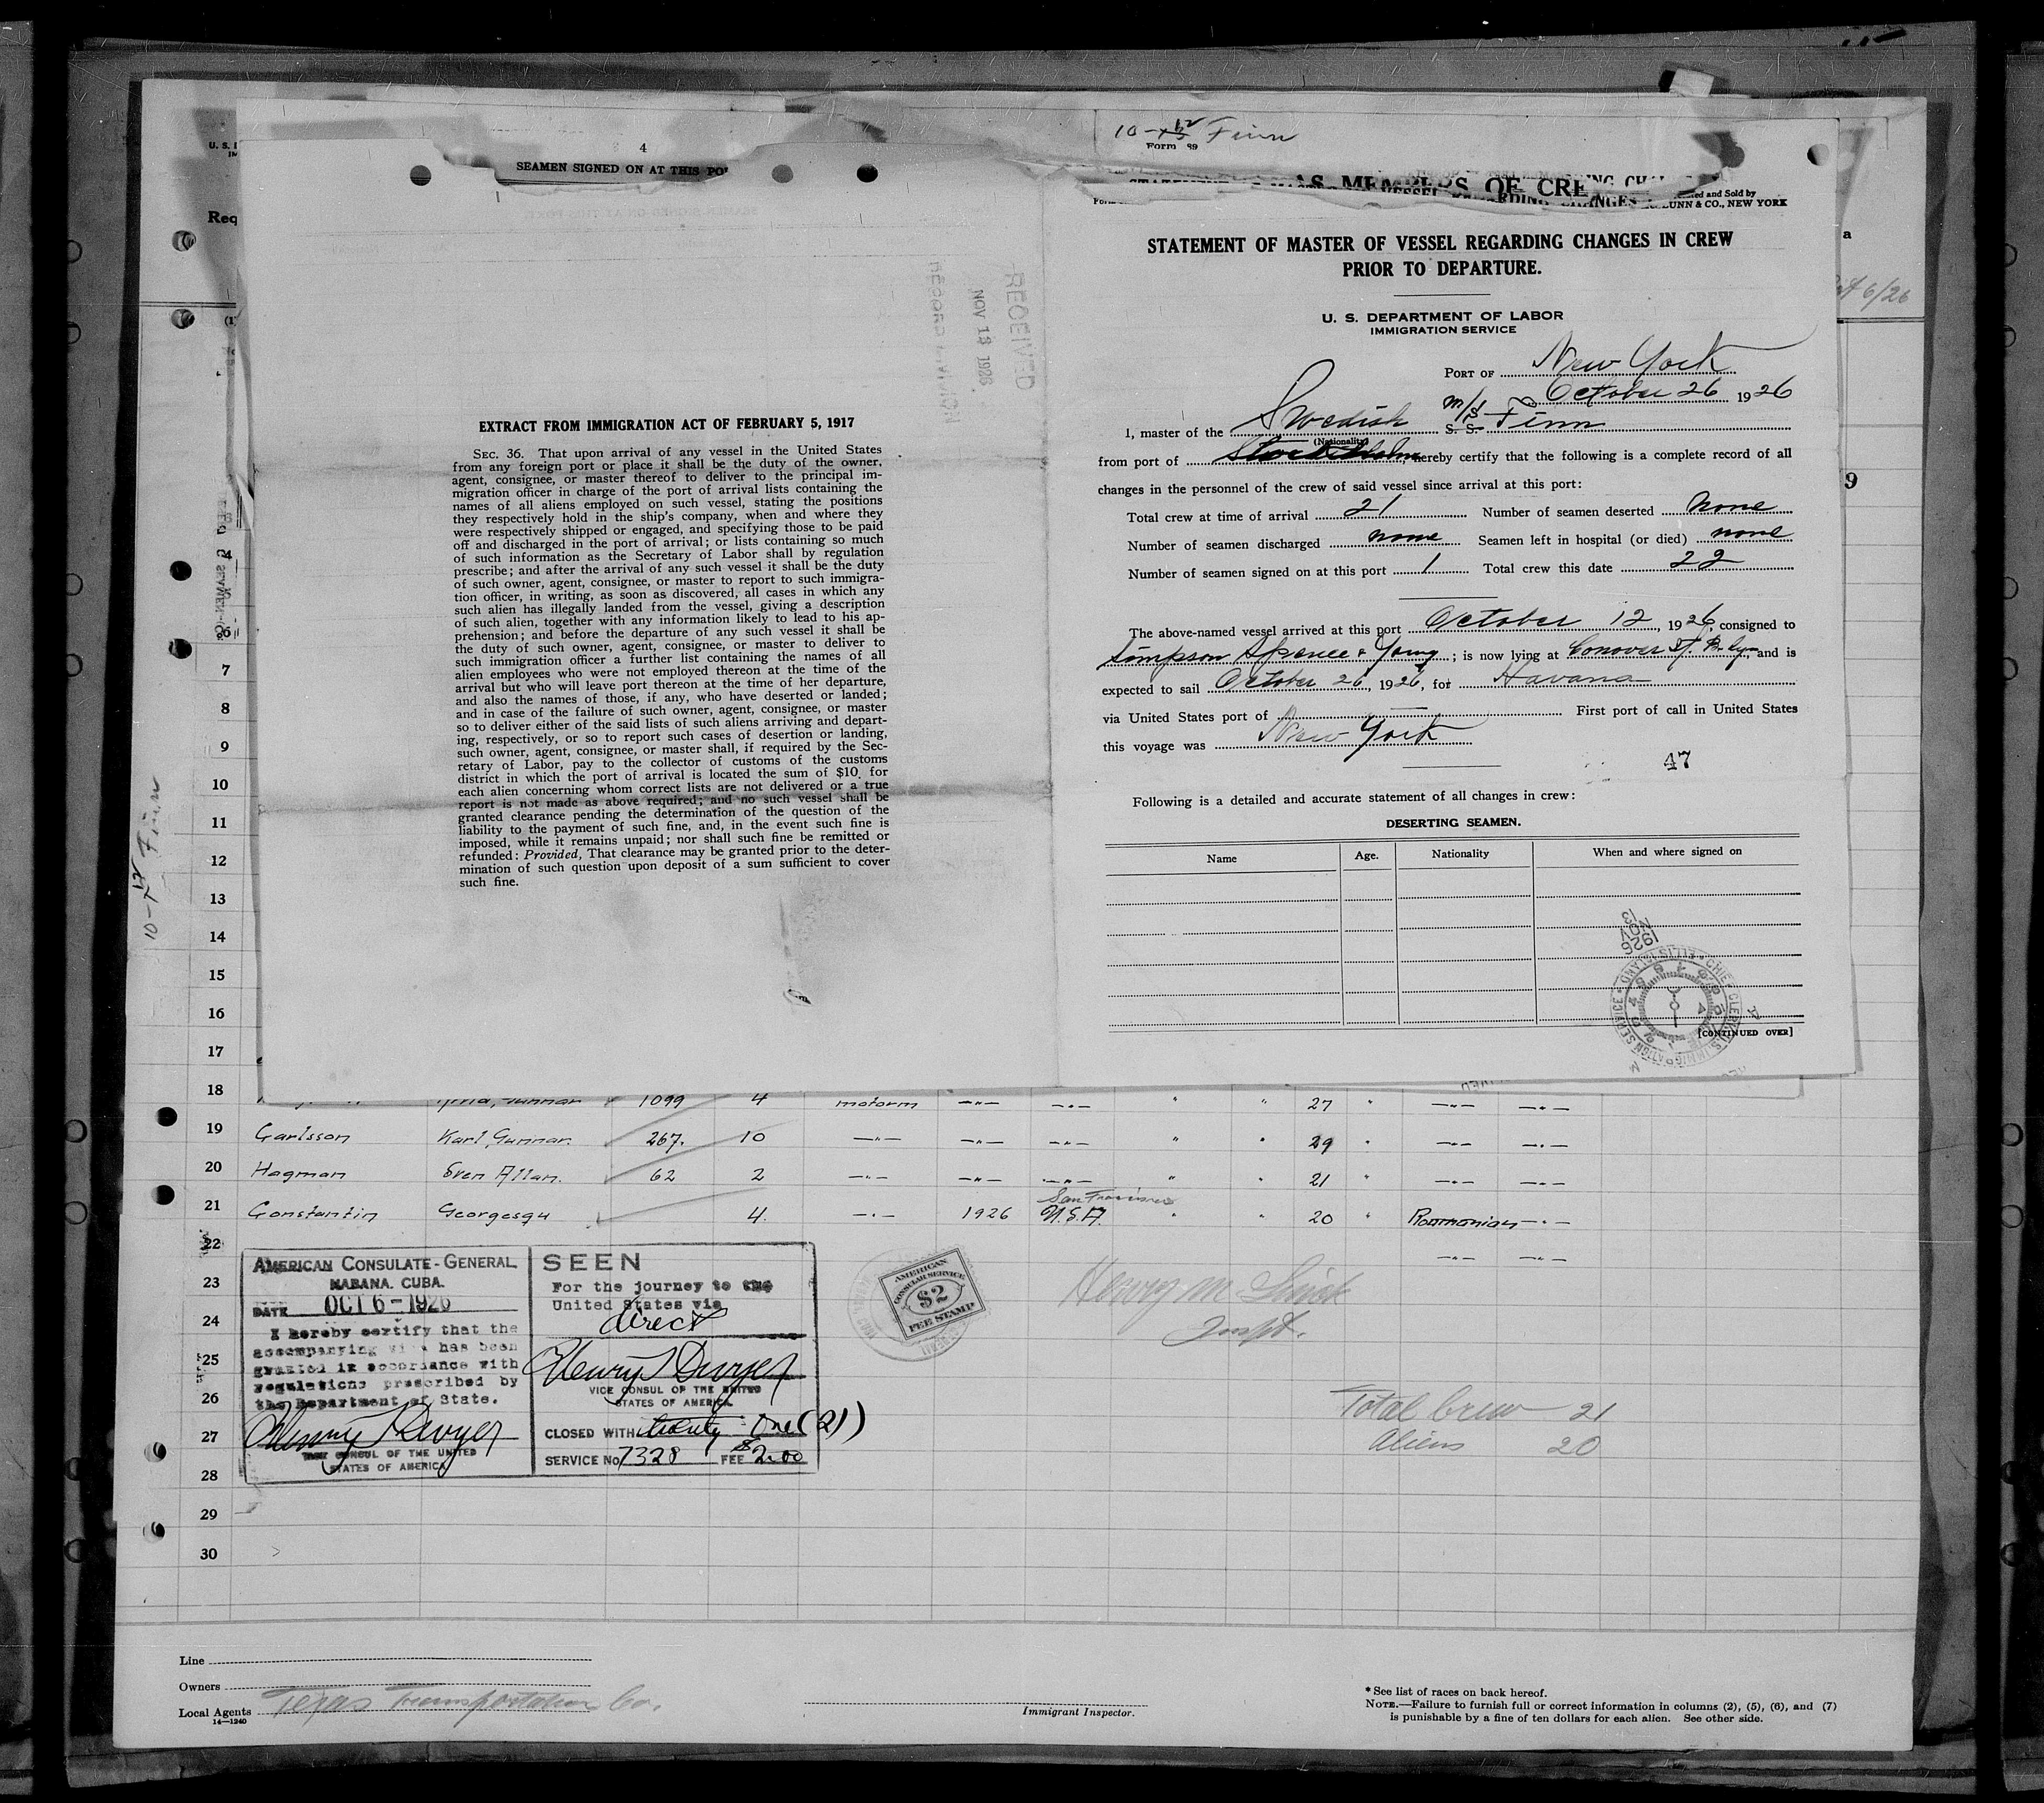 4
SEAMEN SIGNED ON AT THIS PO
EXTRACT FROM IMMIGRATION ACT OF FEBRUARY 5, 1917
SEC. 36. That upon arrival of any vessel in the United States
from any foreign port or place it shall be the duty of the owner,
agent, consignee, or master thereof to deliver to the principal im-
migration officer in charge of the port of arrival lists containing the
names of all aliens employed on such vessel, stating the positions
they respectively hold in the ship's company, when and where they
were respectively shipped or engaged, and specifying those to be paid
off and discharged in the port of arrival; or lists containing so much
of such information as the Secretary of Labor shall by regulation
prescribe; and after the arrival of any such vessel it shall be the duty
of such owner, agent, consignee, or master to report to such immigra-
tion officer, in writing, as soon as discovered, all cases in which any
such alien has illegally landed from the vessel, giving a description
of such alien, together with any information likely to lead to his ap-
prehension; and before the departure of any such vessel it shall be
the duty of such owner, agent, consignee, or master to deliver to
such immigration officer a further list containing the names of all
alien employees who were not employed thereon at the time of the
arrival but who will leave port thereon at the time of her departure,
and also the names of those, if any, who have deserted or landed;
and in case of the failure of such owner, agent, consignee, or master
so to deliver either of the said lists of such aliens arriving and depart-
ing, respectively, or so to report such cases of desertion or landing,
such owner, agent, consignee, or master shall, if required by the Sec-
retary of Labor, pay to the collector of customs of the customs
district in which the port of arrival is located the sum of $10 for
each alien concerning whom correct lists are not delivered or a true
report is not made as above required; and no such vessel shall be
granted clearance pending the determination of the question of the
liability to the payment of such fine, and, in the event such fine is
imposed, while it remains unpaid; nor shall such fine be remitted or
refunded: Provided, That clearance may be granted prior to the deter-
mination of such question upon deposit of a sum sufficient to cover
such fine.
RECEIVED
NOV 13 1926
RECORD DIVISION
10-12 Finn
Form 89
AS MEMBERS OF CRE
and Sold by
UNN & CO., NEW YORK
STATEMENT OF MASTER OF VESSEL REGARDING CHANGES IN CREW
PRIOR TO DEPARTURE.
U. S. DEPARTMENT OF LABOR
IMMIGRATION SERVICE
PORT OF New York
October 26 1926
I, master of the Swedish M/S S. S. Finn
(Nationality)
from port of Stockholm, hereby certify that the following is a complete record of all
changes in the personnel of the crew of said vessel since arrival at this port:
Total crew at time of arrival 21 Number of seamen deserted none
Number of seamen discharged none Seamen left in hospital (or died) none
Number of seamen signed on at this port 1 Total crew this date 22
The above-named vessel arrived at this port October 12, 1926, consigned to
Simpson Spence & Young; is now lying at Conover St B-lyn, and is
expected to sail October 26, 1926, for Havana
via United States port of — First port of call in United States
this voyage was New York
47
Following is a detailed and accurate statement of all changes in crew:
DESERTING SEAMEN.
Name Age. Nationality When and where signed on
1926 NOV 13
CHIEF CLERK U.S. IMMIGRATION SERVICE ELLIS ISLAND
[CONTINUED OVER]
U. S.
Req
(1)
a
6/26
9
10-12 Finn
4
6
7
8
9
10
11
12
13
14
15
16
17
18 Gunnar 1099 4 motorm —"— —"— " " 27 " —"— —"—
19 Carlsson Karl, Gunnar. 267. 10 —"— —"— —"— " " 29 " —"— —"—
20 Hagman Sven Allan. 62 2 —"— —"— —"— " " 21 " —"— —"—
San Francisco
21 Constantin Georgesqu 4. —"— 1926 U.S.A. " " 20 " Roumonian —"—
22 —"— —"—
23
24
25
26
27
28
29
30
AMERICAN CONSULATE-GENERAL
HABANA. CUBA.
DATE OCT 6-1926
I hereby certify that the
accompanying visa has been
granted in accordance with
regulations prescribed by
the Department of State.
Henry T Dwyer
VICE CONSUL OF THE UNITED
STATES OF AMERICA
SEEN
For the journey to the
United States via
direct
Henry T Dwyer
VICE CONSUL OF THE UNITED
STATES OF AMERICA
CLOSED WITH twenty One (21)
SERVICE No 7328 FEE $2.00
AMERICAN
CONSULAR SERVICE
$2
FEE STAMP
Henry M
Inspt.
Total Crew 21
Aliens 20
Line
Owners
Local Agents Texas Transportation Co.
14—1240
Immigrant Inspector.
* See list of races on back hereof.
NOTE.—Failure to furnish full or correct information in columns (2), (5), (6), and (7)
is punishable by a fine of ten dollars for each alien. See other side.